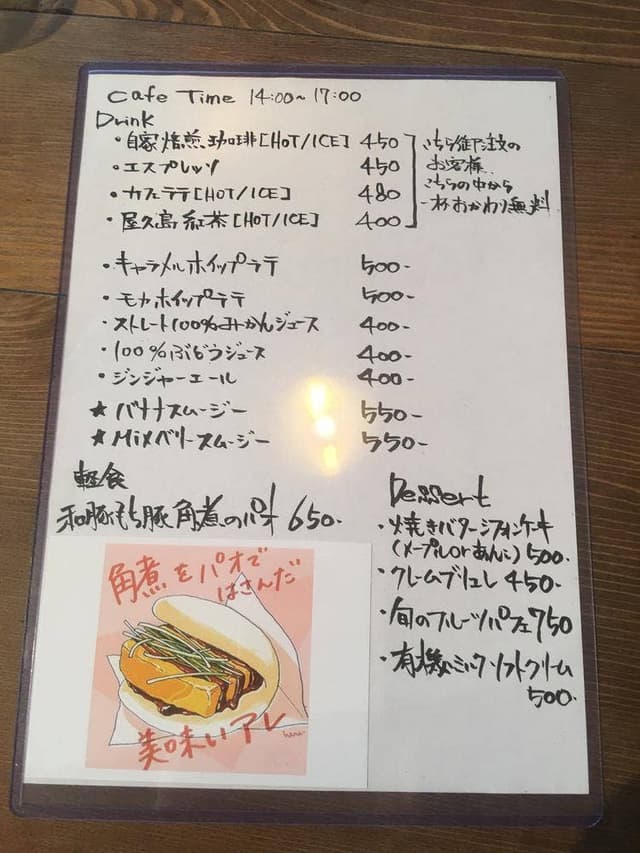 Cafe Time 14:00～17:00
Drink
・自家焙煎珈琲[HOT/ICE] 450
・エスプレッソ 450
・カフェラテ[HOT/ICE] 480
・屋久島紅茶[HOT/ICE] 400
こちら御注文の
お客様
こちらの中から
一杯おかわり無料
・キャラメルホイップラテ 500-
・モカホイップラテ 500-
・ストレート100%みかんジュース 400-
・100%ぶどうジュース 400-
・ジンジャーエール 400-
★バナナスムージー 550-
★Mixベリースムージー 550-
軽食
和豚もち豚角煮のパオ 650-
角煮をパオで
はさんだ
美味いアレ
Dessert
・焼きバターシフォンケーキ
(メープルorあんこ) 500-
・クレームブリュレ 450-
・旬のフルーツパフェ 750
・有機ミルクソフトクリーム
500-